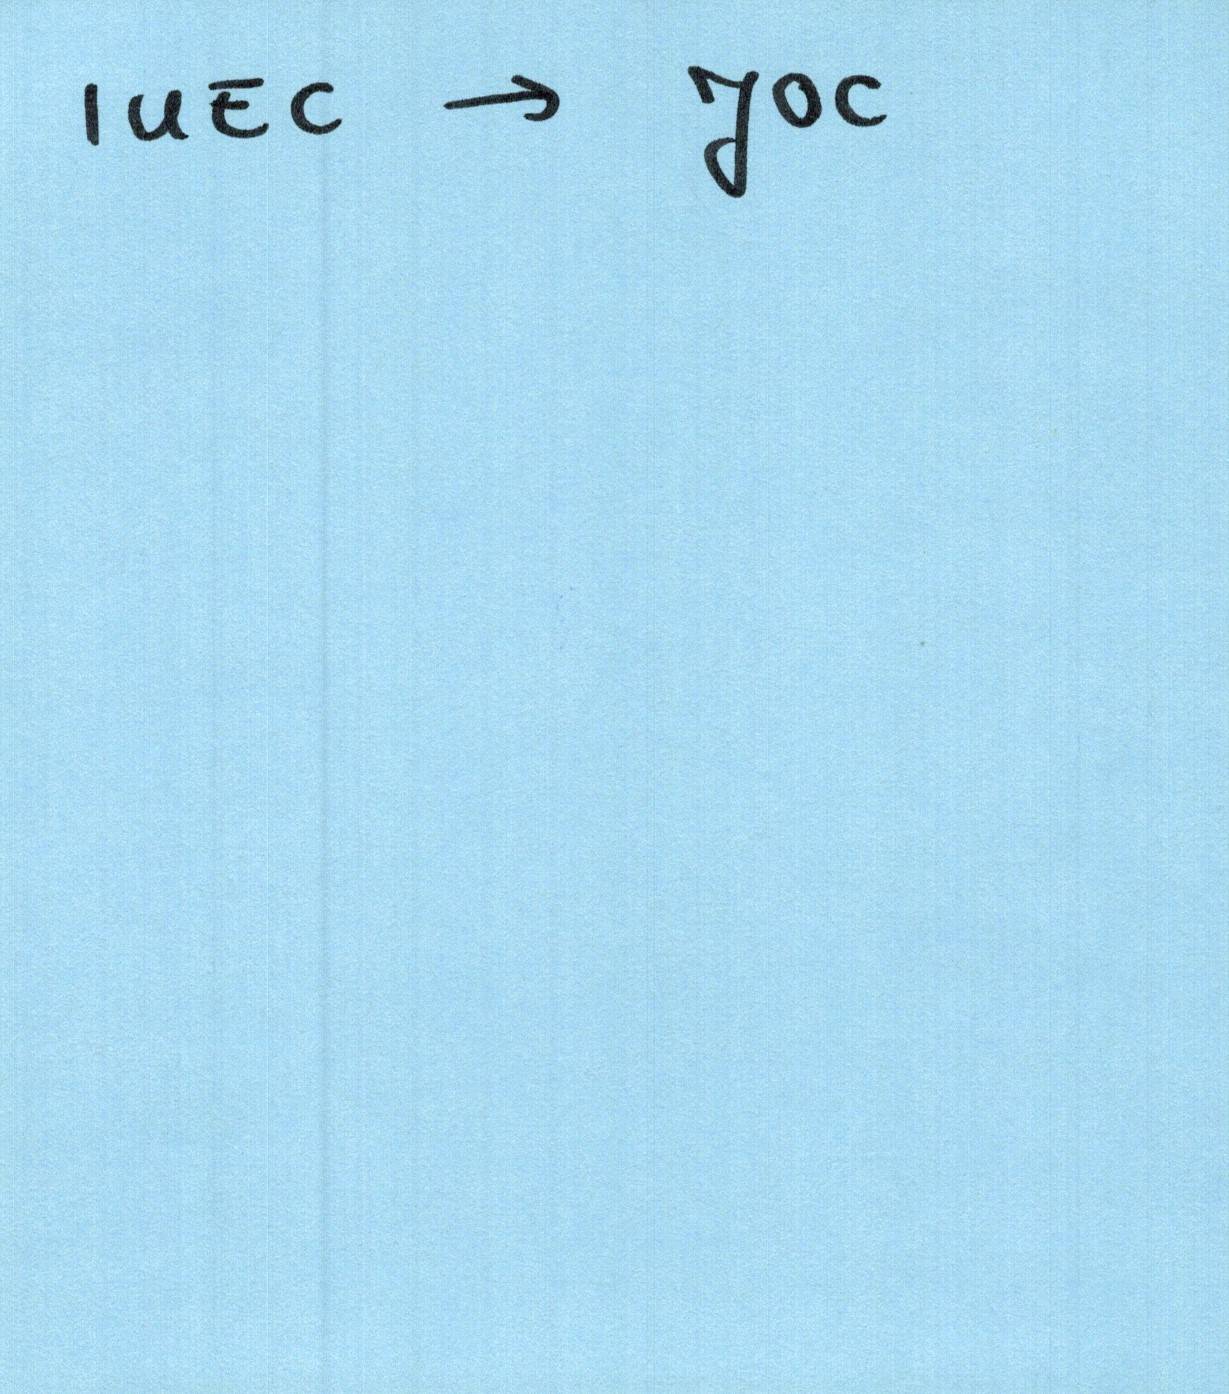 IUEC → JOC